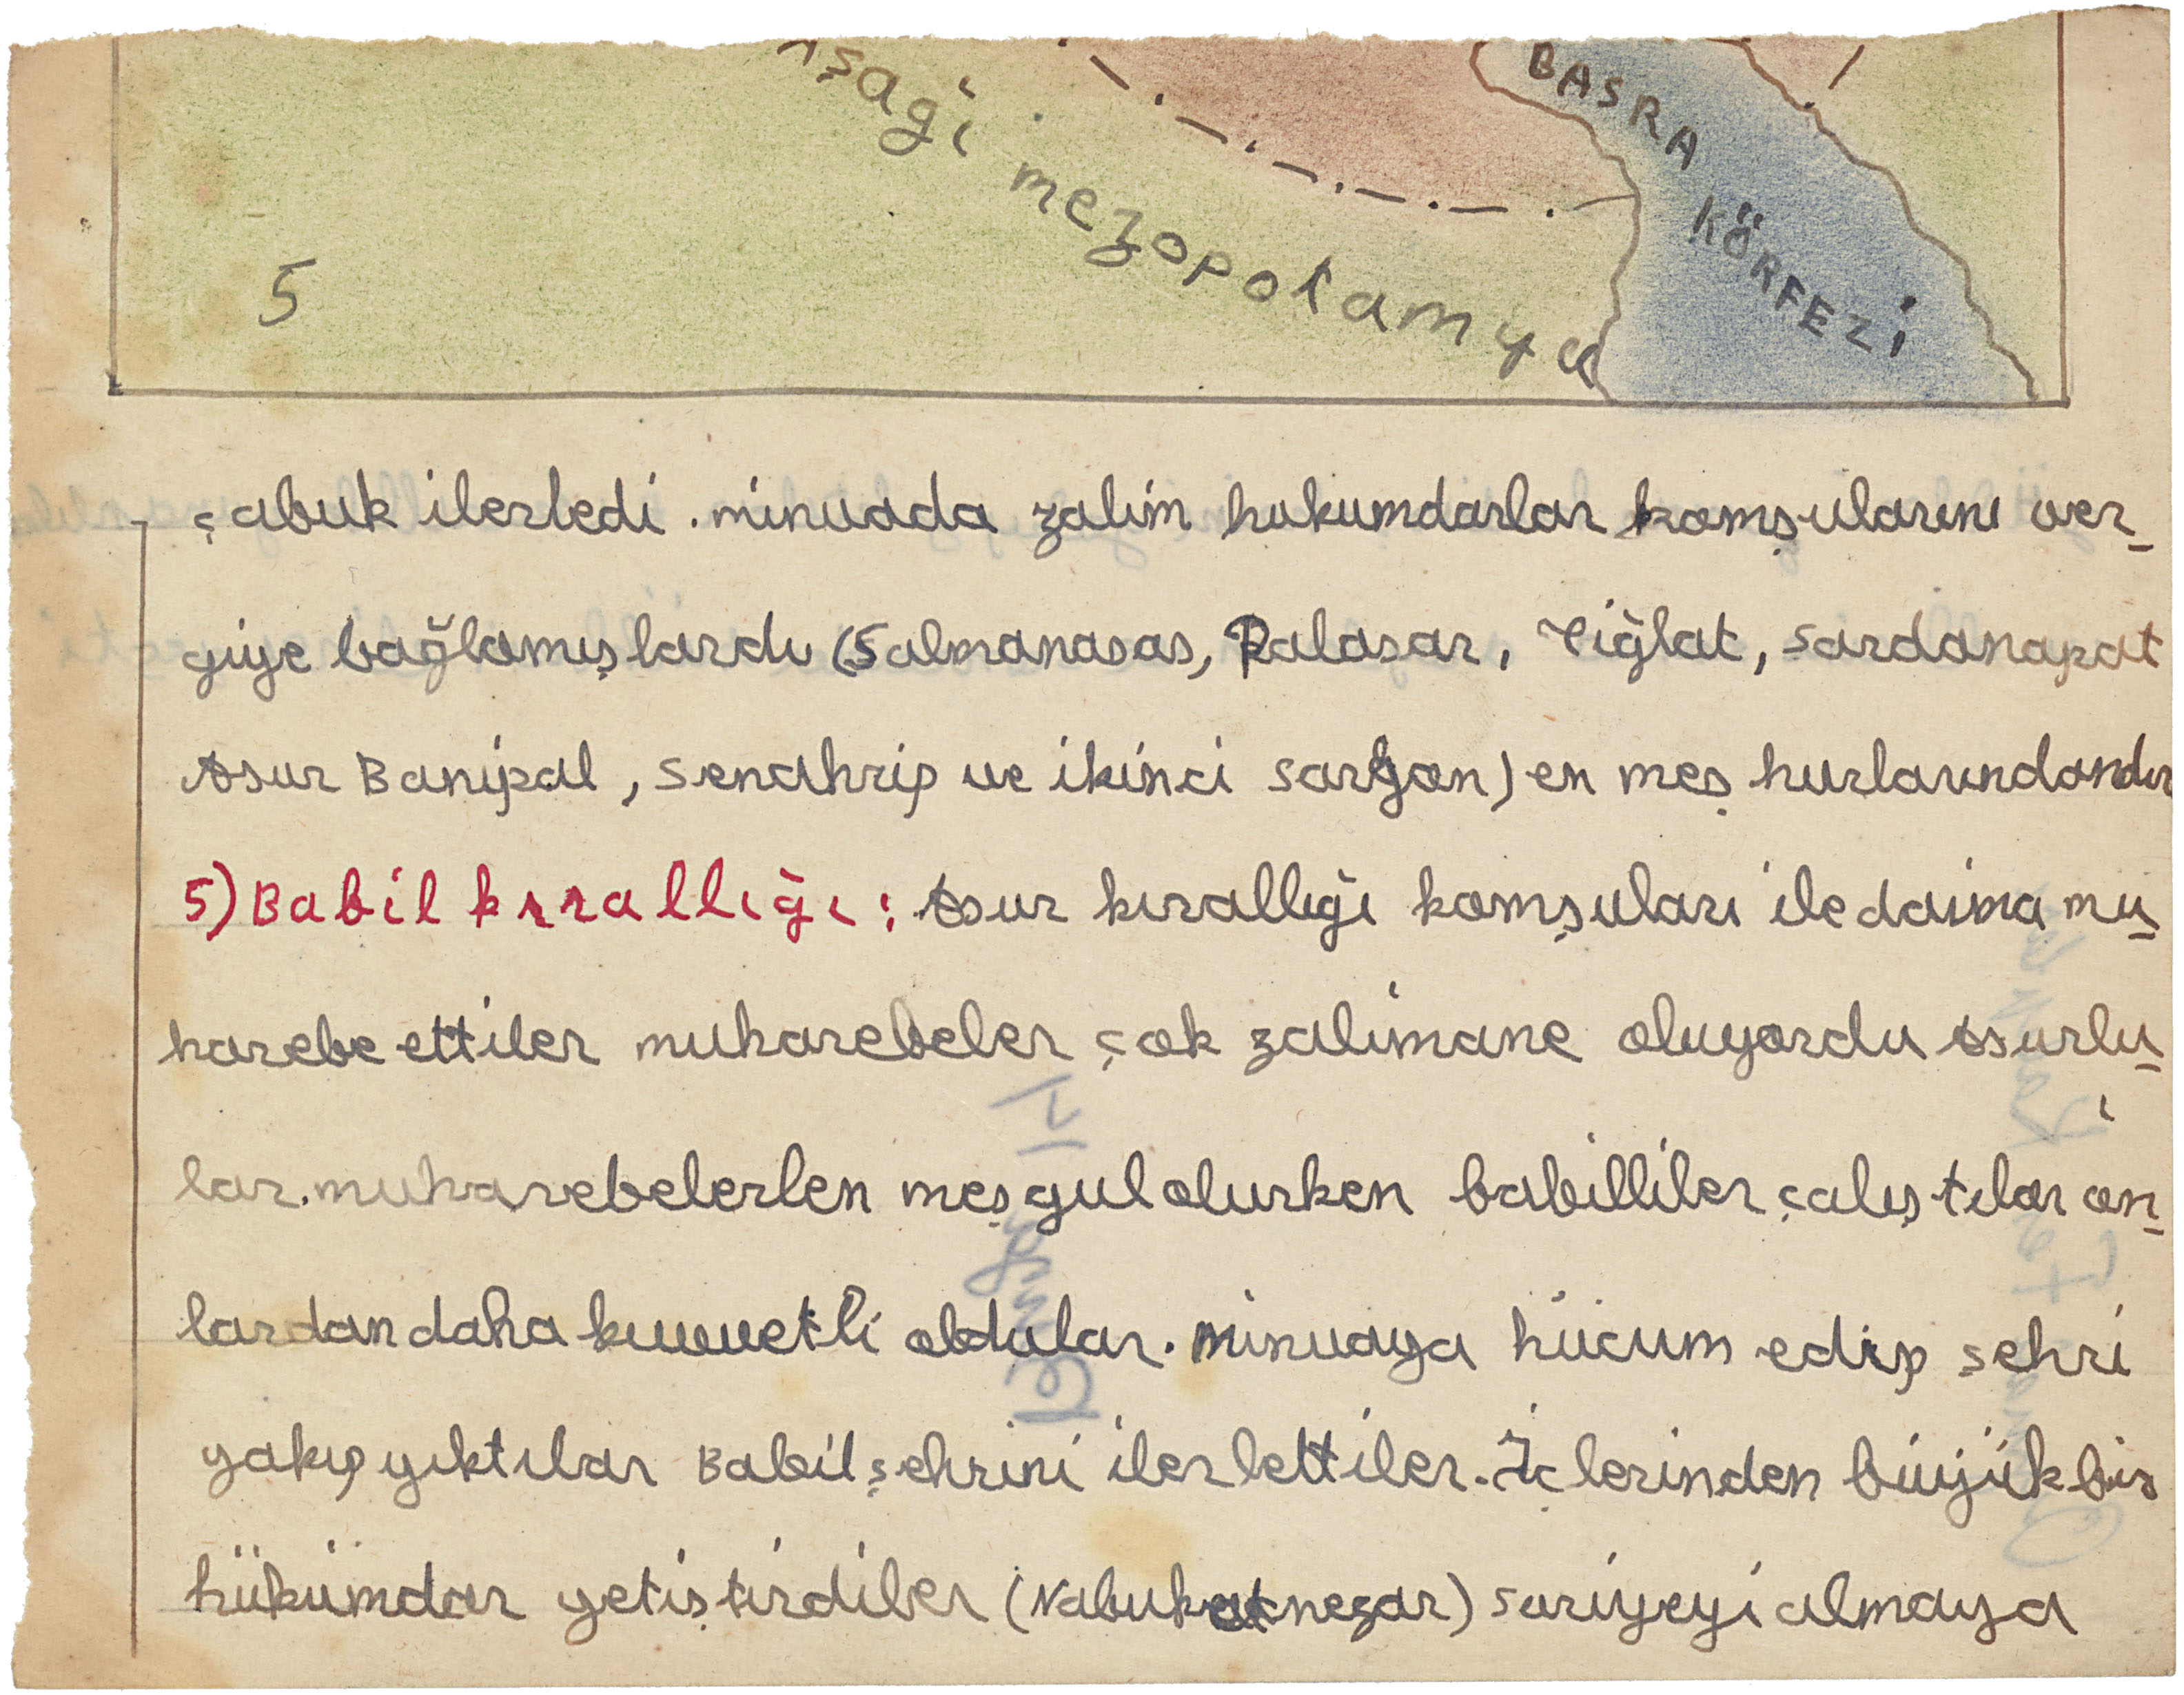 Aşağı mezopotamya
BASRA KÖRFEZİ
5
çabuk ilerledi. minuada zalim hukumdarlar komşularını ver_
giye bağlamışlardı (Salmanasas, Palasar, Tiğlat, Sardanapat
Asur Banipal, Senahrip ve ikinci Sargon) en meşhurlarındandır
5) Babil kırallığı: Asur kırallığı komşuları ile daima mu_
harebe ettiler muharebeler çok zalimane oluyordu Asurlu_
lar. muharebelerlen meşgul olurken babilliler çalıştılar on_
lardan daha kuvvetli oldular. Minuaya hücum edip şehri
yakıp yıktılar Babil şehrini ilerlettiler. İçlerinden büyük bir
hükümdar yetiştirdiler (Nabukatnezar) suriyeyi almaya